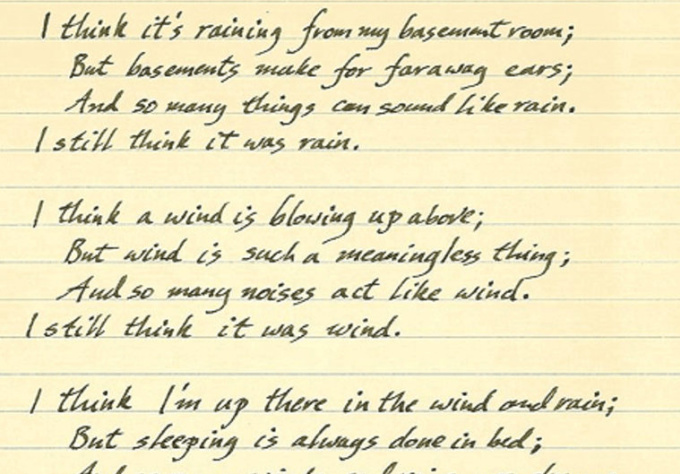 I think it's raining from my basement room;
But basements make for faraway ears;
And so many things can sound like rain.
I still think it was rain.
I think a wind is blowing up above;
But wind is such a meaningless thing;
And so many noises act like wind.
I still think it was wind.
I think I'm up there in the wind and rain;
But sleeping is always done in bed;